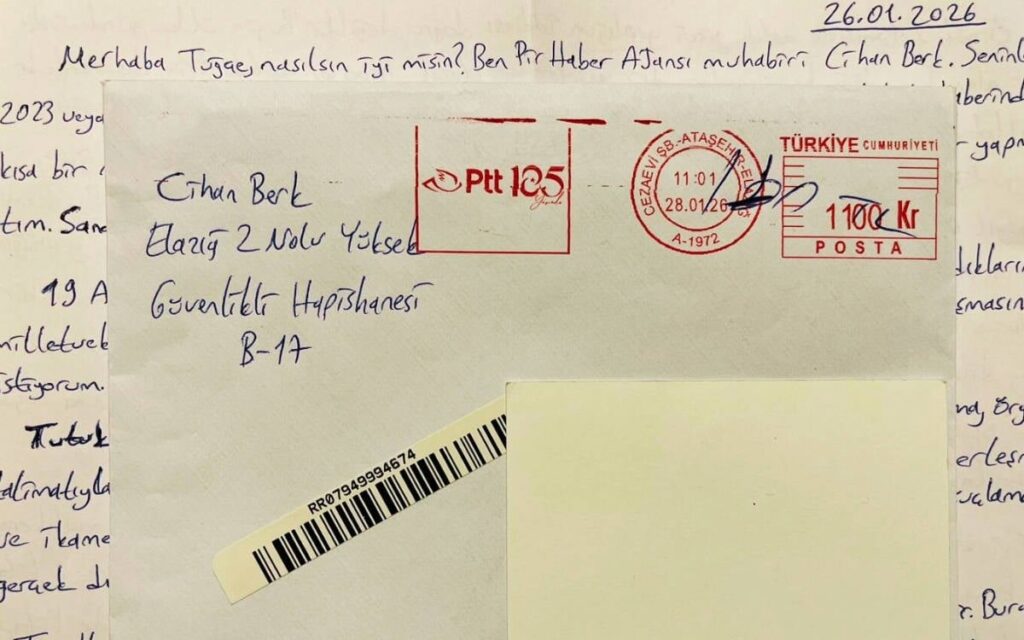 26.01.2026
Merhaba Tuğçe, nasılsın iyi misin? Ben Pir Haber Ajansı muhabiri Cihan Berk. Seninl
2023 veya
haberind
kısa bir
r yapm
tım. Sana
19 A
dıkların
milletvek
şmasın
istiyorum.
Tutuk
nd, örg
talimatıyla
erleşi
ve ikame
valama
gerçek dı
r. Bura
Cihan Berk
Elazığ 2 Nolu Yüksek
Güvenlikli Hapishanesi
B-17
Ptt 185
CEZAEVİ ŞB.-ATAŞEHİR-EL
11:01
28.01.26
A-1972
TÜRKİYE CUMHURİYETİ
1100 Kr
POSTA
RR07949994674